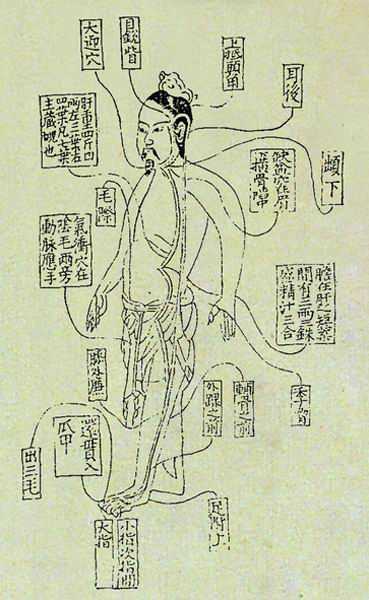 大迎穴
目銳眥
上抵頭角
耳後
肝重四斤四
兩左三葉右
四葉凡七葉
主藏魂也
缺盆穴在肩
橫骨陷
毛際
氣衝穴在
陰毛兩旁
動脈應手
膽在肝之短葉
間有三兩三銖
盛精汁三合
季脅
外廉
輔骨前
外踝之前
還貫入
爪甲
出三毛
足跗上
小指次指間
大指